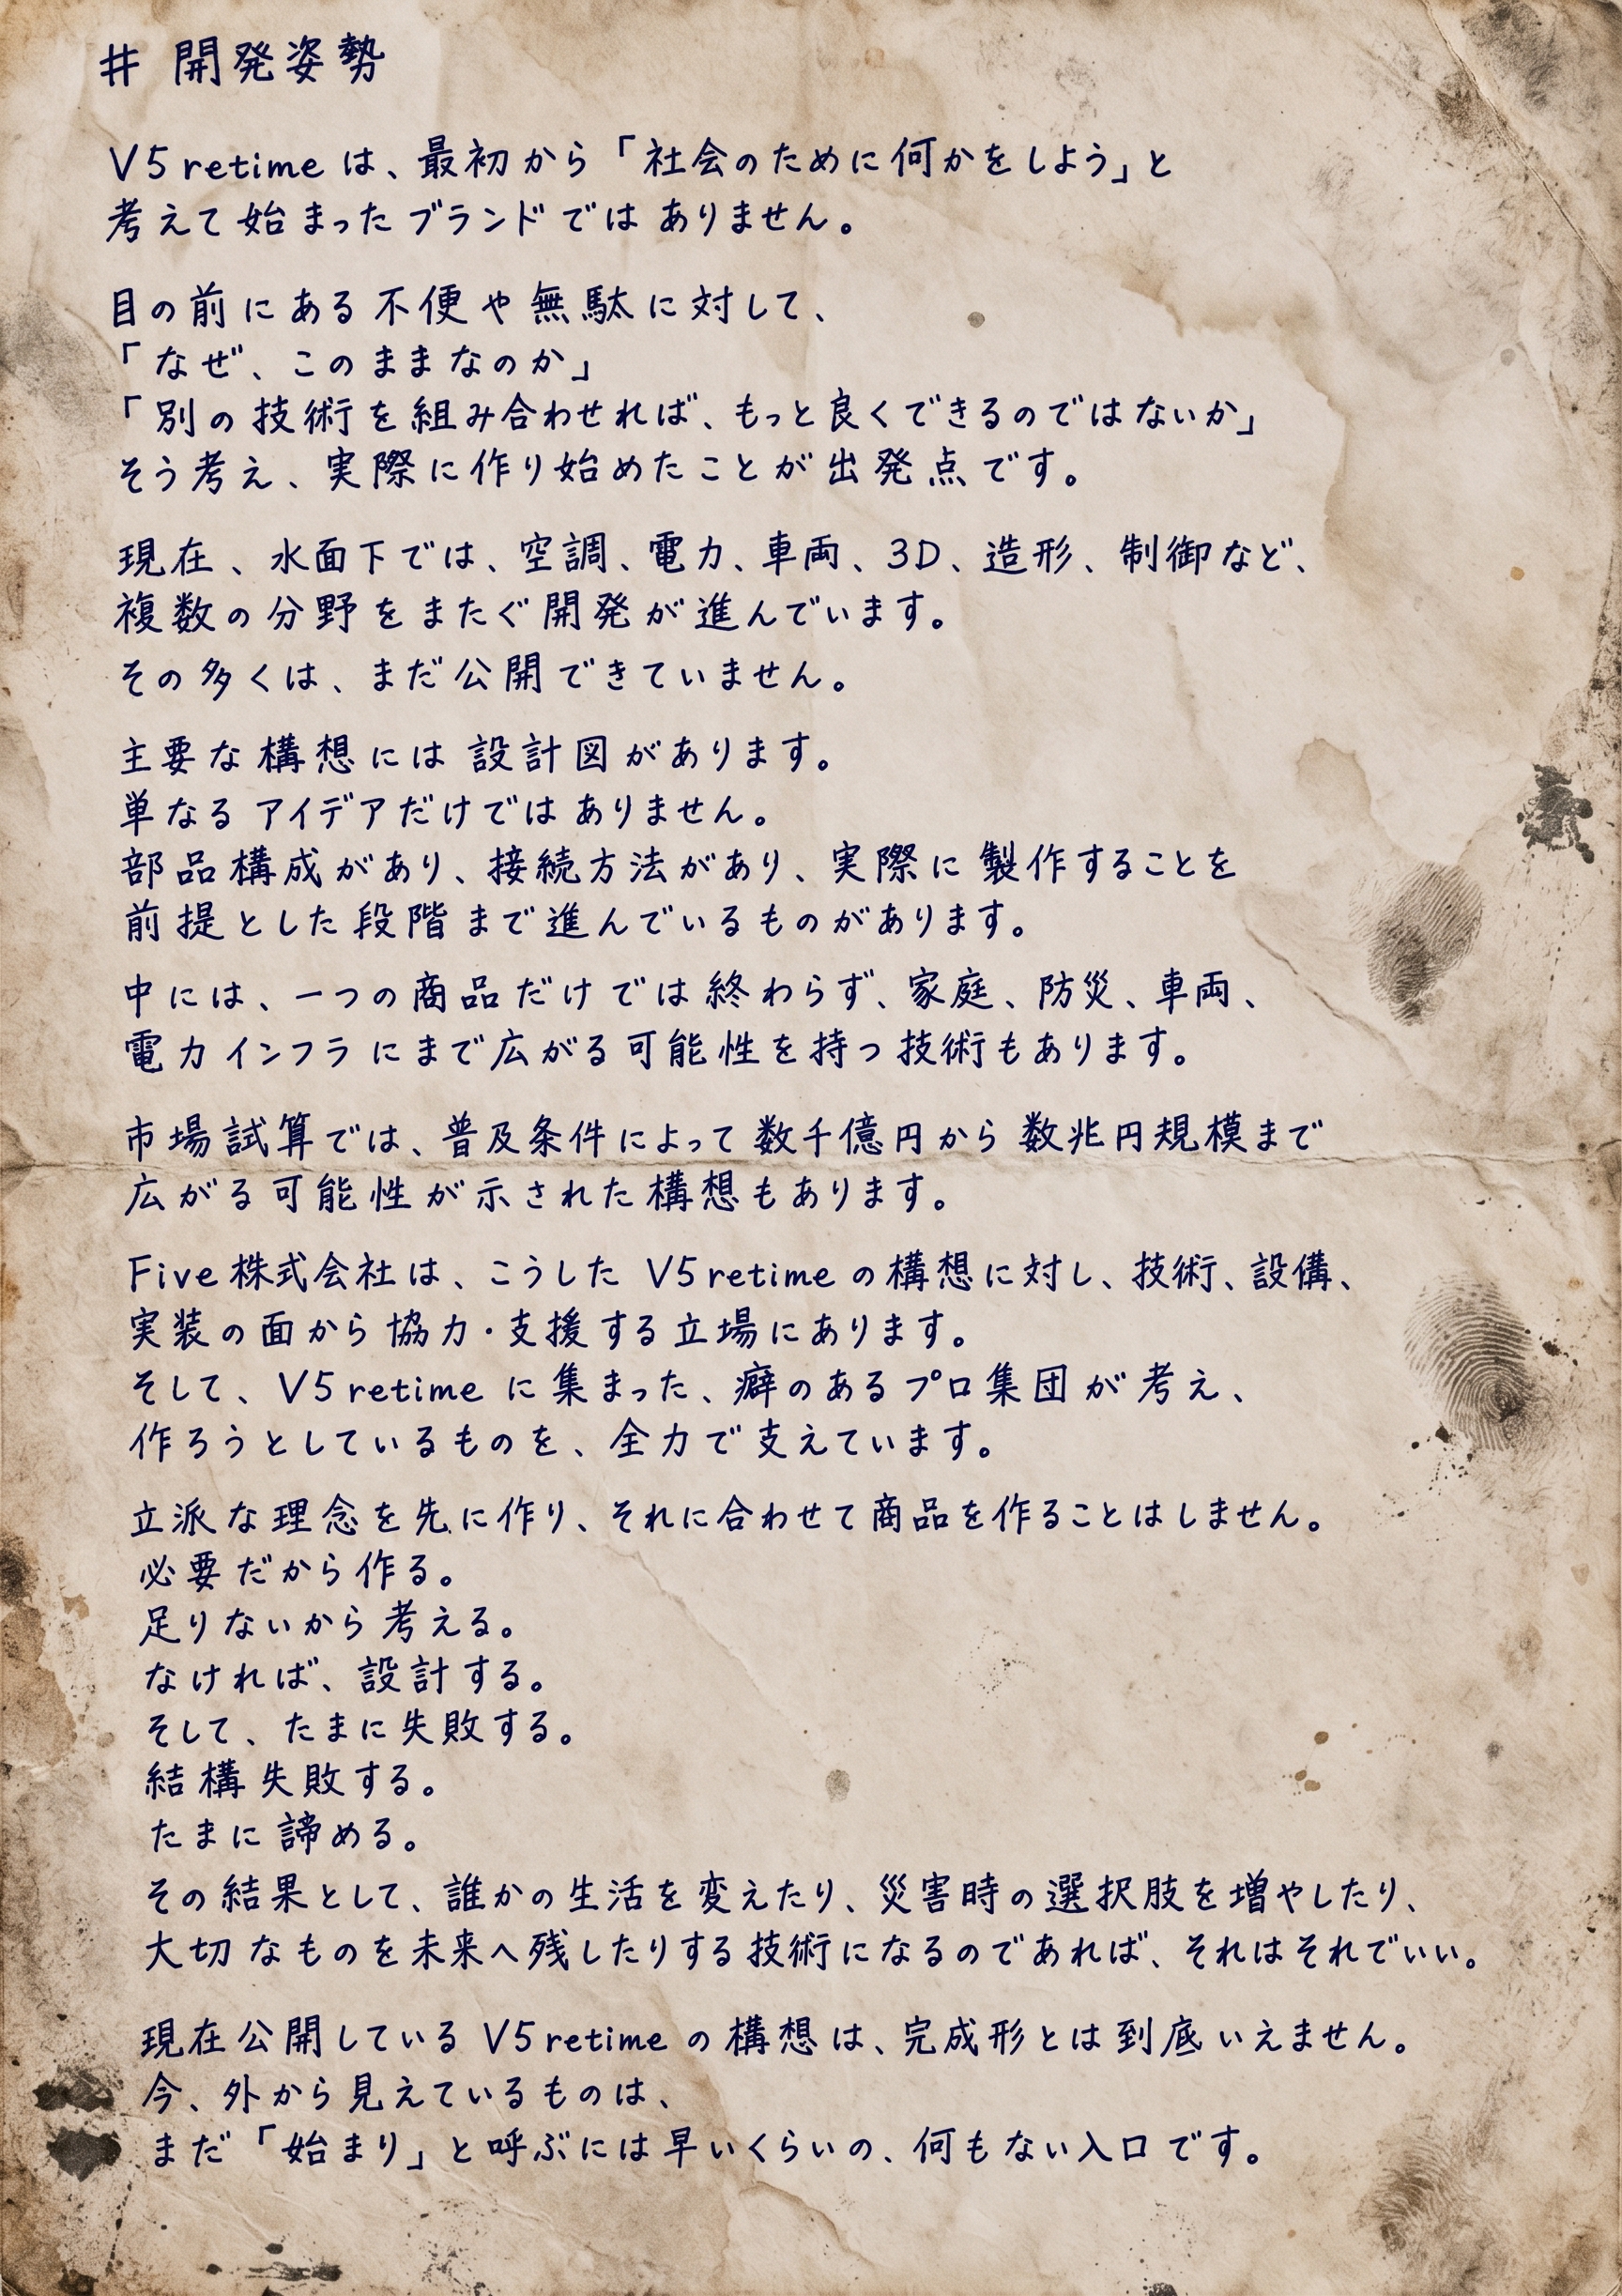 # 開発姿勢
V5 retime は、最初から「社会のために何かをしよう」と
考えて始まったブランドではありません。
目の前にある不便や無駄に対して、
「なぜ、このままなのか」
「別の技術を組み合わせれば、もっと良くできるのではないか」
そう考え、実際に作り始めたことが出発点です。
現在、水面下では、空調、電力、車両、3D、造形、制御など、
複数の分野をまたぐ開発が進んでいます。
その多くは、まだ公開できていません。
主要な構想には設計図があります。
単なるアイデアだけではありません。
部品構成があり、接続方法があり、実際に製作することを
前提とした段階まで進んでいるものがあります。
中には、一つの商品だけでは終わらず、家庭、防災、車両、
電力インフラにまで広がる可能性を持つ技術もあります。
市場試算では、普及条件によって数千億円から数兆円規模まで
広がる可能性が示された構想もあります。
Five株式会社は、こうした V5 retime の構想に対し、技術、設備、
実装の面から協力・支援する立場にあります。
そして、V5 retime に集まった、癖のあるプロ集団が考え、
作ろうとしているものを、全力で支えています。
立派な理念を先に作り、それに合わせて商品を作ることはしません。
必要だから作る。
足りないから考える。
なければ、設計する。
そして、たまに失敗する。
結構失敗する。
たまに諦める。
その結果として、誰かの生活を変えたり、災害時の選択肢を増やしたり、
大切なものを未来へ残したりする技術になるのであれば、それはそれでいい。
現在公開している V5 retime の構想は、完成形とは到底いえません。
今、外から見えているものは、
まだ「始まり」と呼ぶには早いくらいの、何もない入口です。